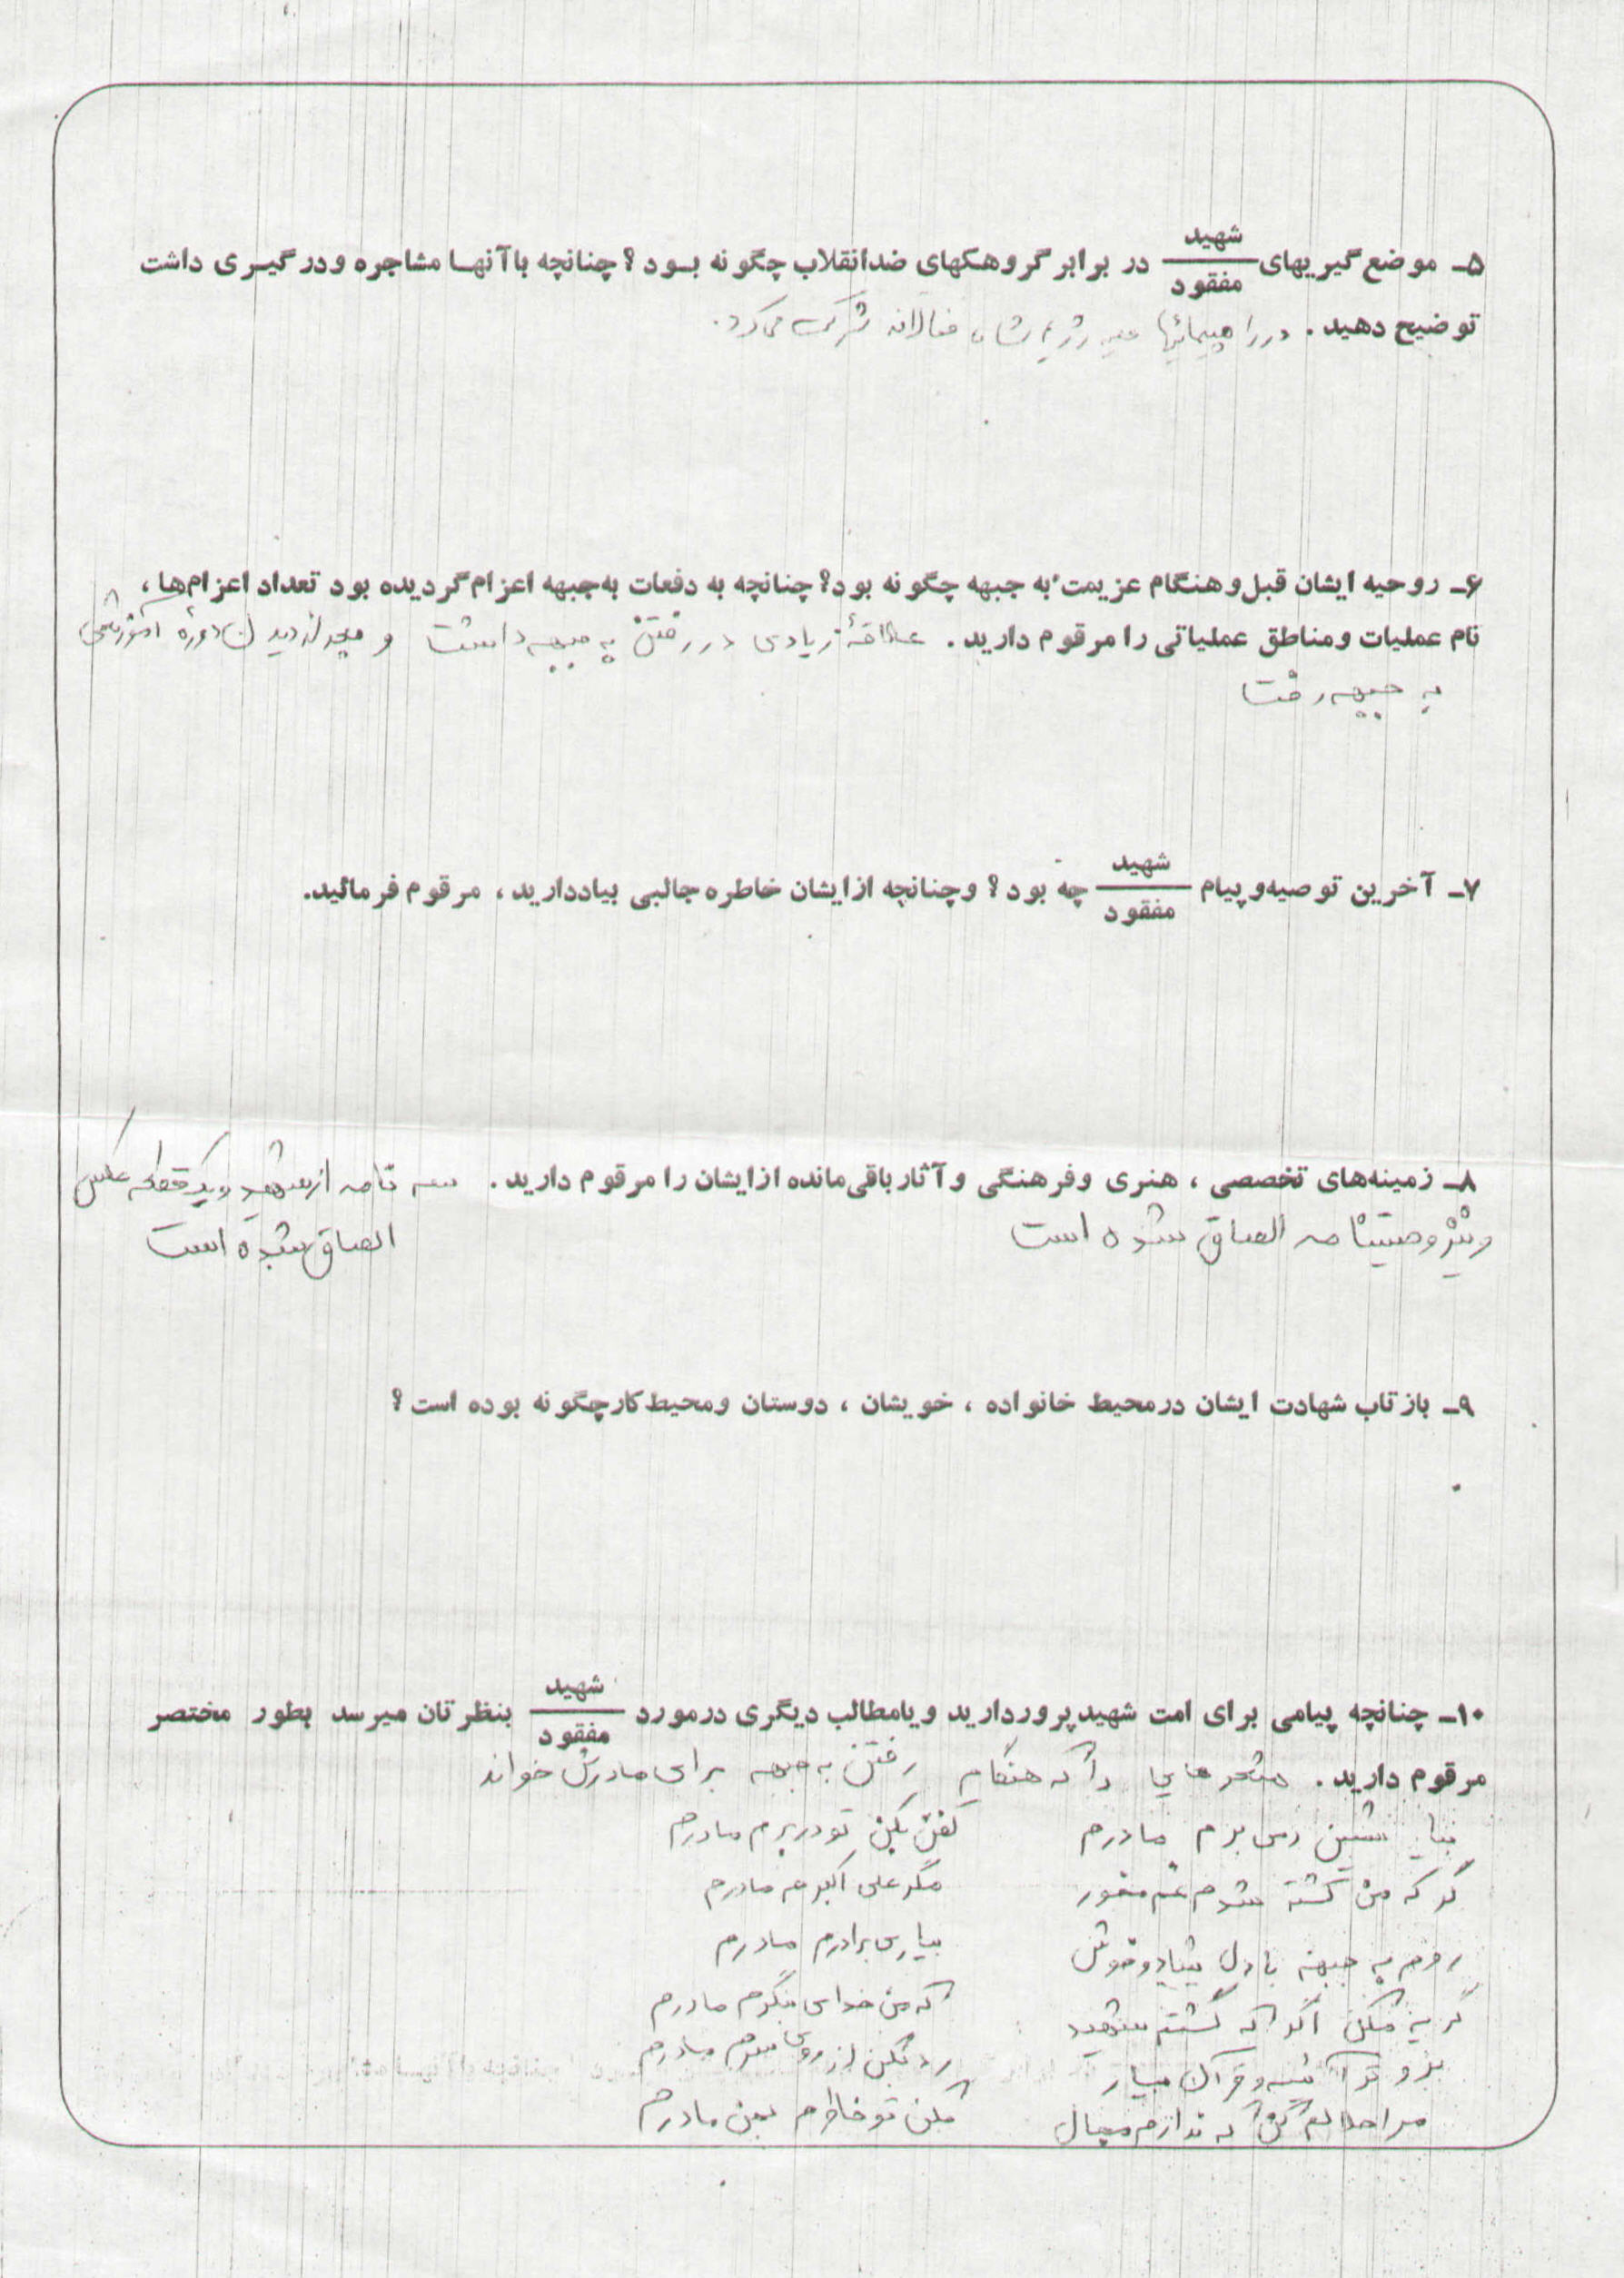 ۵ـ موضع‌گیریهای شهید/مفقود در برابر گروهکهای ضدانقلاب چگونه بود؟ چنانچه باآنها مشاجره ودرگیری داشت
توضیح دهید. در راهپیمائیها علیه رژیم شاه فعالانه شرکت می‌کرد.
۶ـ روحیه ایشان قبل‌وهنگام عزیمت به جبهه چگونه بود؟ چنانچه به دفعات به‌جبهه اعزام‌گردیده بود تعداد اعزام‌ها،
نام عملیات ومناطق عملیاتی را مرقوم دارید. علاقهٔ زیادی در رفتن به جبهه داشت و بعد از دیدن دورهٔ آموزشی
به جبهه رفت
۷ـ آخرین توصیه‌وپیام شهید/مفقود چه بود؟ وچنانچه ازایشان خاطره‌جالبی بیاددارید، مرقوم فرمائید.
۸ـ زمینه‌های تخصصی، هنری وفرهنگی وآثارباقی‌مانده ازایشان را مرقوم دارید. سه نامه از شهید ویک قطعه عکس
الصاق شده است
ونیز وصیتنامه الصاق شده است
۹ـ بازتاب شهادت ایشان درمحیط خانواده، خویشان، دوستان ومحیط‌کارچگونه بوده است؟
۱۰ـ چنانچه پیامی برای امت شهیدپروردارید ویامطالب دیگری درمورد شهید/مفقود بنظرتان میرسد بطور مختصر
مرقوم دارید. شعرهایی را که هنگام رفتن به جبهه برای مادرش خواند
بیا بنشین دمی برم مادرم کفن بکن تو در برم مادرم
گر که من کشته شوم غم مخور مگر علی اکبرم مادرم
روم به جبهه با دل شاد و خوش بیاری برادرم مادرم
گریه مکن اگر که گشتم شهید که من خدایی مادرم
برو تو آئینه و قرآن بیار رد بکن از روی سرم مادرم
مرا حلالم کن که ندارم مجال مکن تو خاطرم مادرم